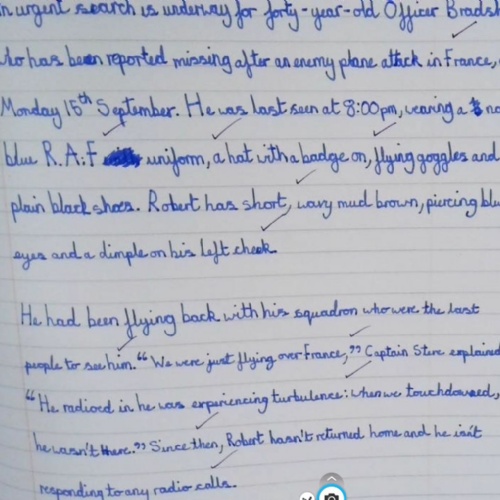 n urgent search is underway for forty-year-old Officer Bradsh
who has been reported missing after an enemy plane attack in France,
Monday 15th September. He was last seen at 8:00pm, wearing a
blue R.A.F uniform, a hat with a badge on, flying goggles and
plain black shoes. Robert has short, wavy mud brown, piercing blu
eyes and a dimple on his left cheek.
He had been flying back with his squadron who were the last
people to see him. "We were just flying over France," Captain Steve explained
"He radioed in he was experiencing turbulence: when we touchdowned,
he wasn't there." Since then, Robert hasn't returned home and he isn't
responding to any radio calls.